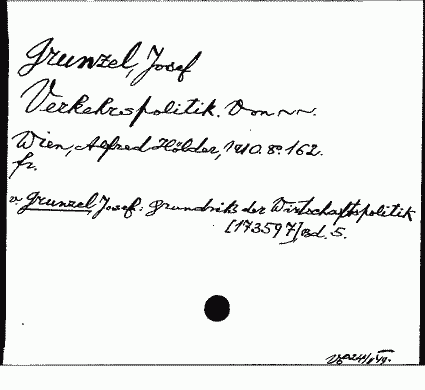 Grunzel, Josef
Verkehrspolitik. Von ~ ~.
Wien, Alfred Hölder, 1910. 8º. 162.
fr.
v. Grunzel, Josef: Grundriß der Wirtschaftspolitik
[173597] Bd. 5.